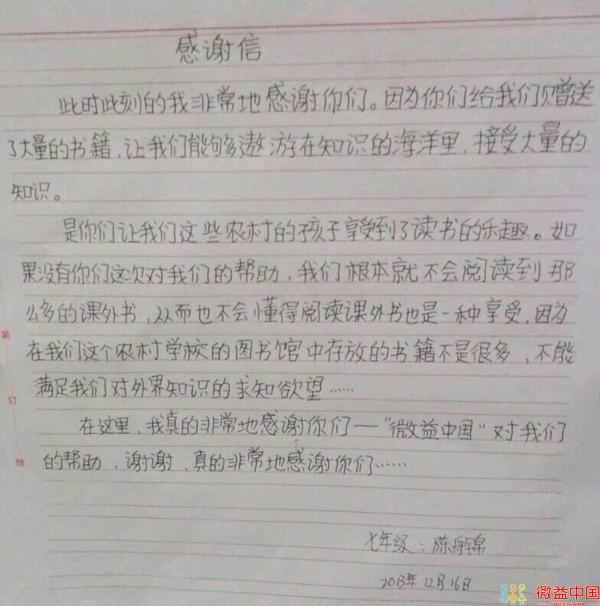 感谢信
此时此刻的我非常地感谢你们。因为你们给我们赠送
了大量的书籍,让我们能够遨游在知识的海洋里,接受大量的
知识。
是你们让我们这些农村的孩子享受到了读书的乐趣。如
果没有你们这次对我们的帮助,我们根本就不会阅读到那
么多的课外书,从而也不会懂得阅读课外书也是一种享受,因为
在我们这个农村学校的图书馆中存放的书籍不是很多,不能
满足我们对外界知识的求知欲望……
在这里,我真的非常地感谢你们——"微益中国"对我们
的帮助,谢谢,真的非常地感谢你们……
七年级:陈
2013年12月16日
装
订
线
微益中国